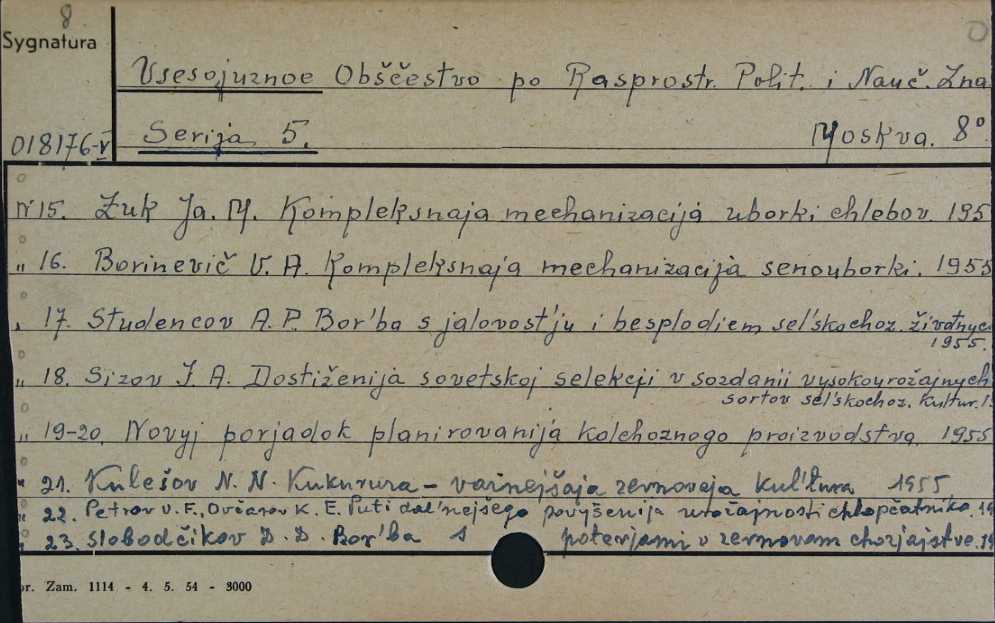 8
Sygnatura
Vsesojuznoe Obščestvo po Rasprostr. Polit. i Nauč. Zna
018176-V Serija 5. Moskva. 8°
N 15. Žuk Ja. M. Kompleksnaja mechanizacija uborki chlebov. 195
„ 16. Borinevič V. A. Kompleksnaja mechanizacija senouborki. 1955
„ 17. Studencov A. P. Bor'ba s jalovost'ju i besplodiem sel'skochoz. životnyc
1955.
„ 18. Sizov I. A. Dostiženija sovetskoj selekcji v sozdanii vysokourožajnych
sortov sel'skochoz. kultur. 1.
„ 19-20. Novyj porjadok planirovanija kolchoznogo proizvodstva 1955
„ 21. Kulešov N. N. Kukuruza – važnejšaja zernovaja kul'tura 1955
„ 22. Petrov V. F., Ovčarov K. E. Puti dal'nejšego povyšenija urožajnosti chlopčatnika. 19
„ 23. Slobodčikov D. D. Bor'ba s poterjami v zernovom chozjajstve. 19
or. Zam. 1114 - 4. 5. 54 - 3000